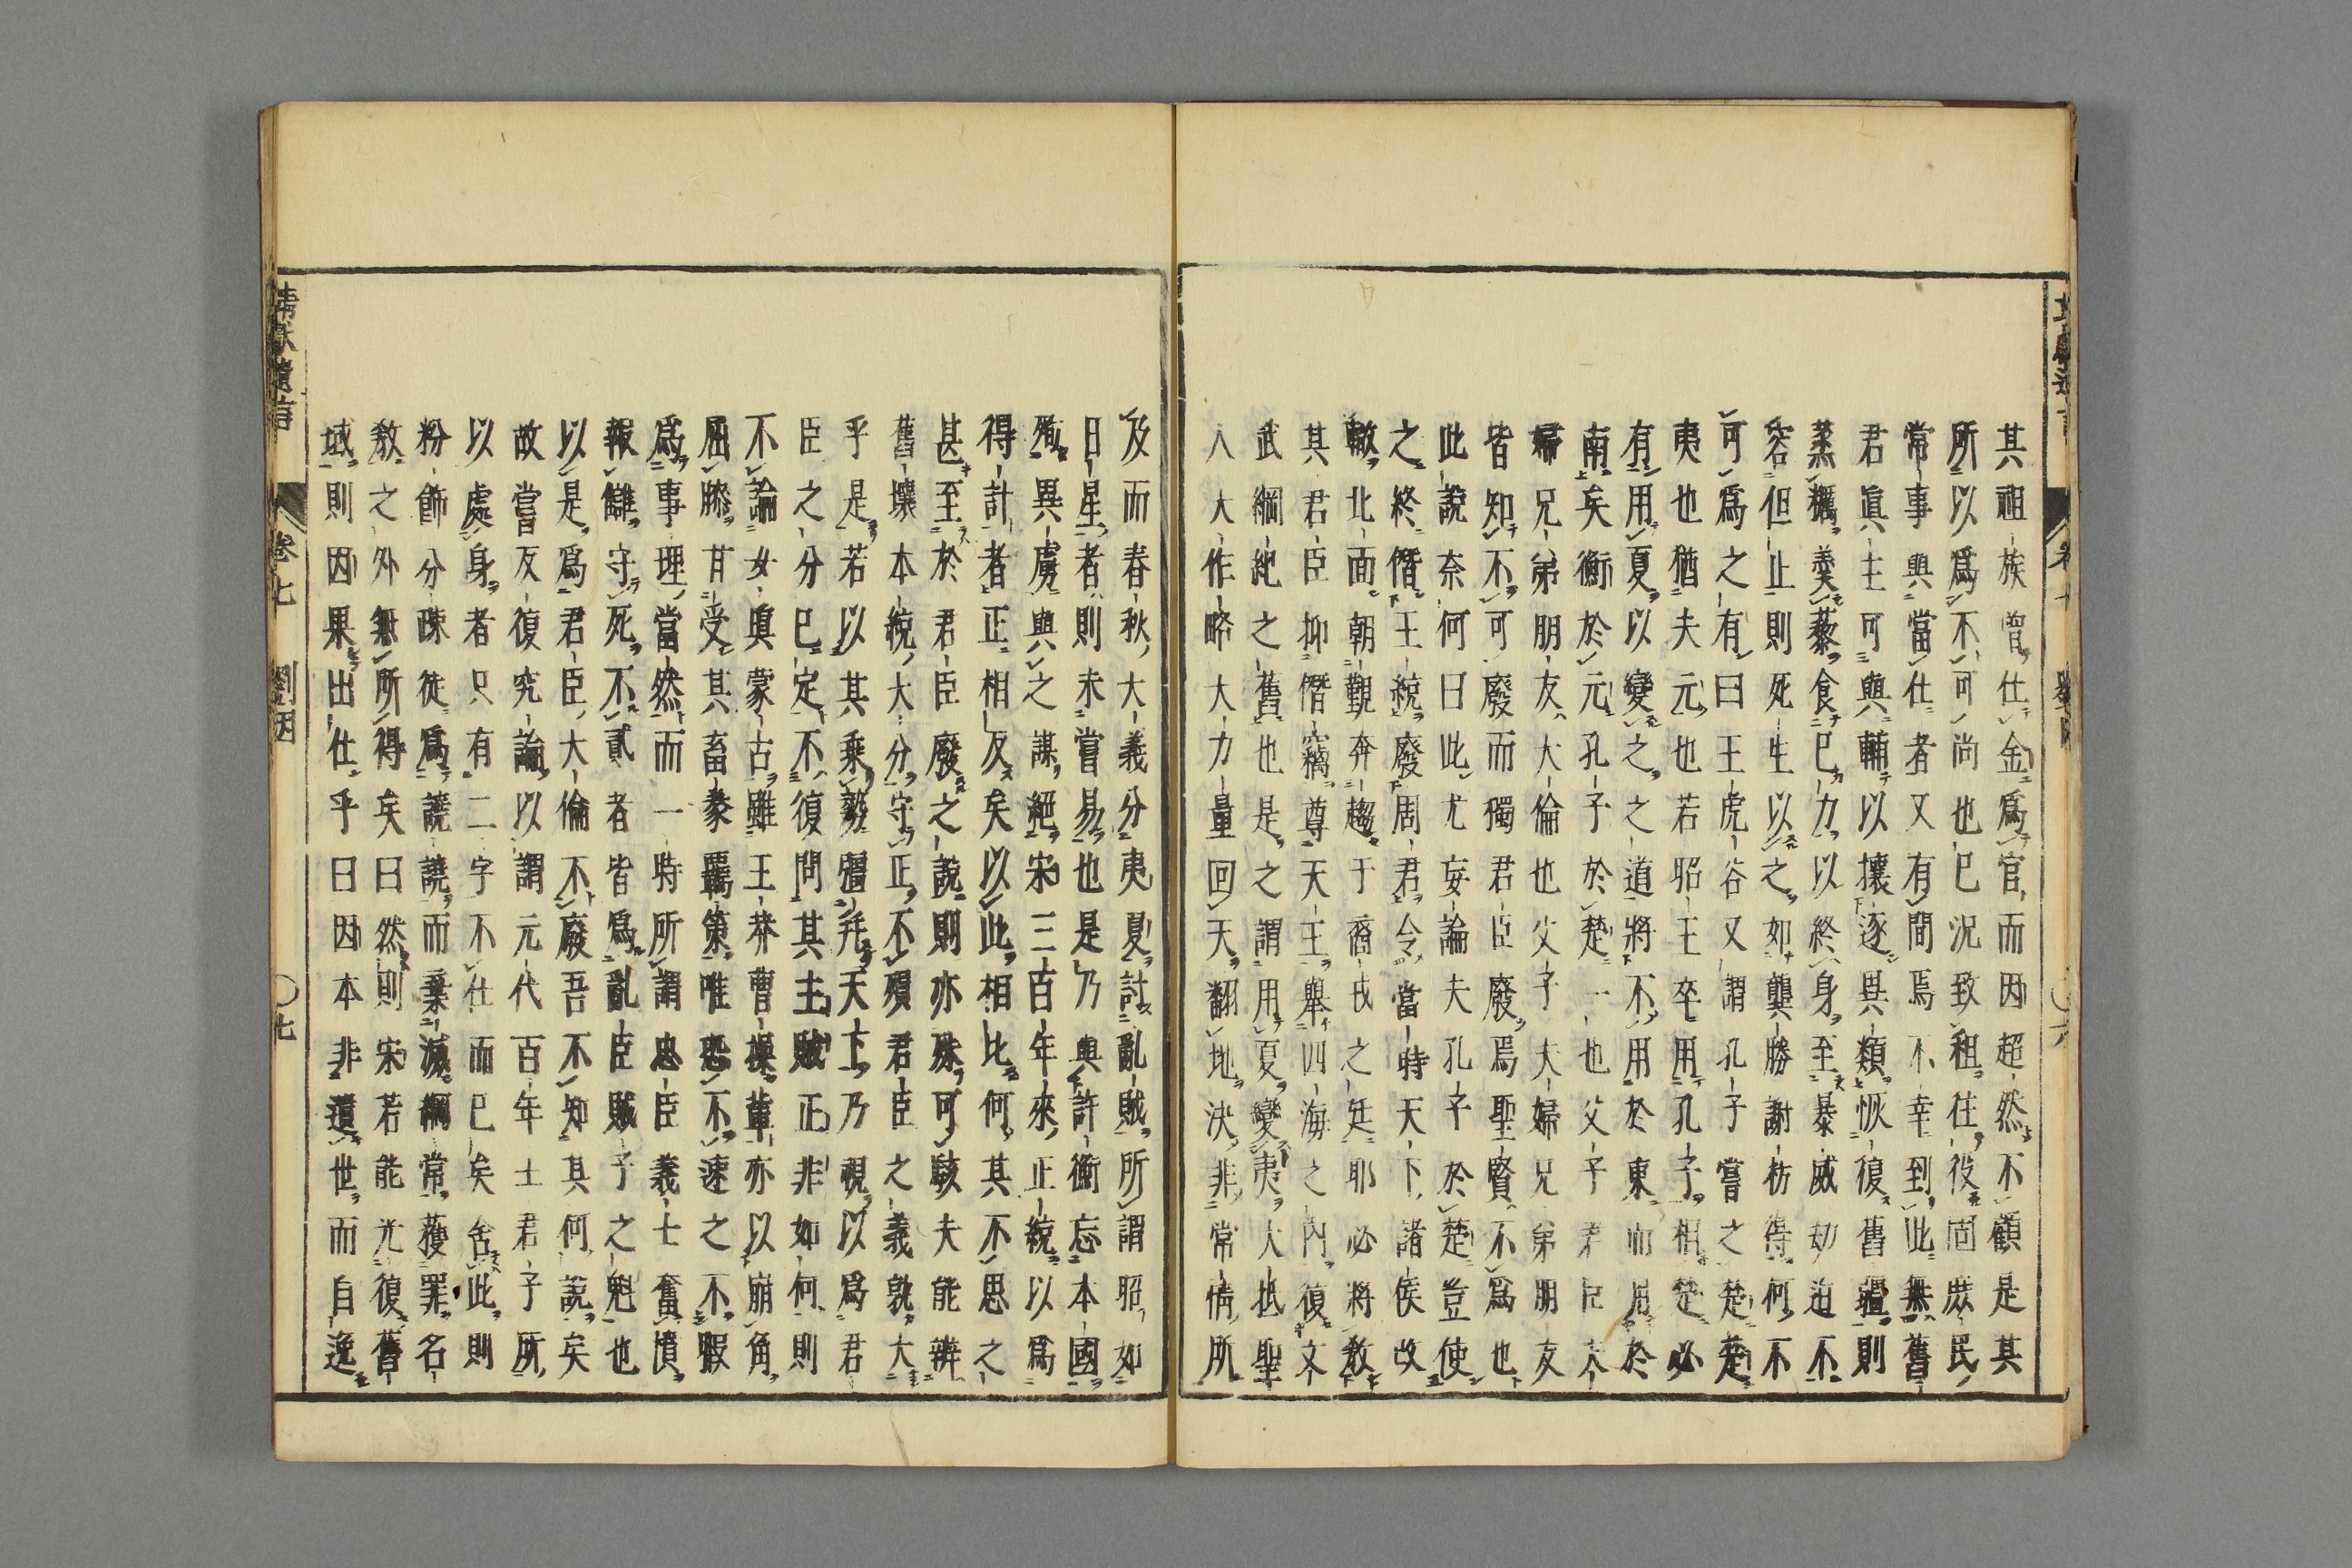 其祖族曾仕金爲官而因超然不顧是其
所以爲不可尚也已況致租往役固庶民
常事與當仕者又有間焉不幸到此無舊
君眞主可與輔以攘逐異類恢復舊疆則
蒸糲羹藜食已力以終身至暴威劫迫不
容但止則死生以之如龔勝謝枋得何不
可爲之有曰王虎谷又謂孔子嘗之楚楚
夷也猶夫元也若昭王卒用孔子相楚必
有用夏以變之之道將不用於東而用於
南矣衡於元孔子於楚一也父子君臣夫
婦兄弟朋友大倫也父子夫婦兄弟朋友
皆知不可廢而獨君臣廢焉聖賢不爲也
此說奈何曰此尤妄論夫孔子於楚豈使
之終僭王統廢周君令當時天下諸侯改
轍北面朝覲奔趨于裔戎之廷耶必將教
其君臣抑僭竊尊天王舉四海之内復文
武綱紀之舊也是之謂用夏變夷大抵聖
人大作略大力量回天翻地決非常情所
及而春秋大義分夷夏討亂賊所謂昭如
日星者則未嘗易也是乃與許衡忘本國
殉異虜與之謀絕宋三百年來正統以爲
得計者正相反矣以此相比何其不思之
甚至於君臣廢之說則亦殊可駭夫能辨
舊壤本統大分守正不殞君臣之義孰大
乎是若以其乘毅彊拜天上乃視以爲君
臣之分已定不復問其主賊正非如何則
不論女眞蒙古雖王莽曹操輩亦以崩角
屈膝甘受其畜豢羈策唯恐不速之不暇
爲事理當然而一時所謂忠臣義士奮憤
報讎守死不貳者皆爲亂臣賊子之魁也
以是爲君臣大倫不廢吾不知其何說矣
故嘗反復究論以謂元代百年士君子所
以處身者只有二字不仕而已矣舍此則
粉飾分疎徒爲譊譊而棄滅綱常獲罪名
教之外無所得矣曰然則宋若能光復舊
域則因果出仕乎曰因本非遺世而自逸
靖獻遺言 卷七 劉因 〇七